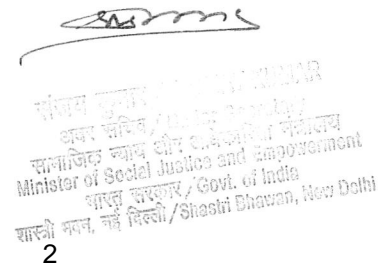 संजय कुमार / KUMAR
अवर सचिव / Under Secretary
सामाजिक न्याय और अधिकारिता मंत्रालय
Minister of Social Justice and Empowerment
भारत सरकार / Govt. of India
शास्त्री भवन, नई दिल्ली / Shastri Bhawan, New Delhi
2